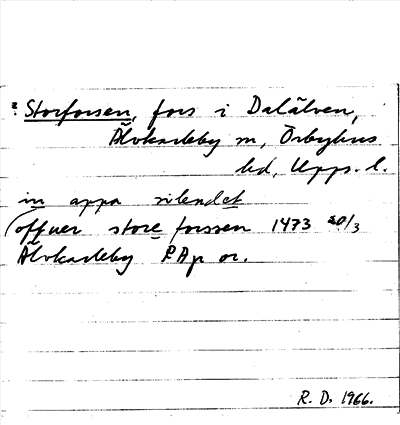 Storforsen, fors i Dalälven,
Älvkarleby sn, Örbyhus
hd, Upps. l.
in appa silendet
(offuer store forssen 1473 20/3
Älvkarleby PAp or.
R. D. 1966.